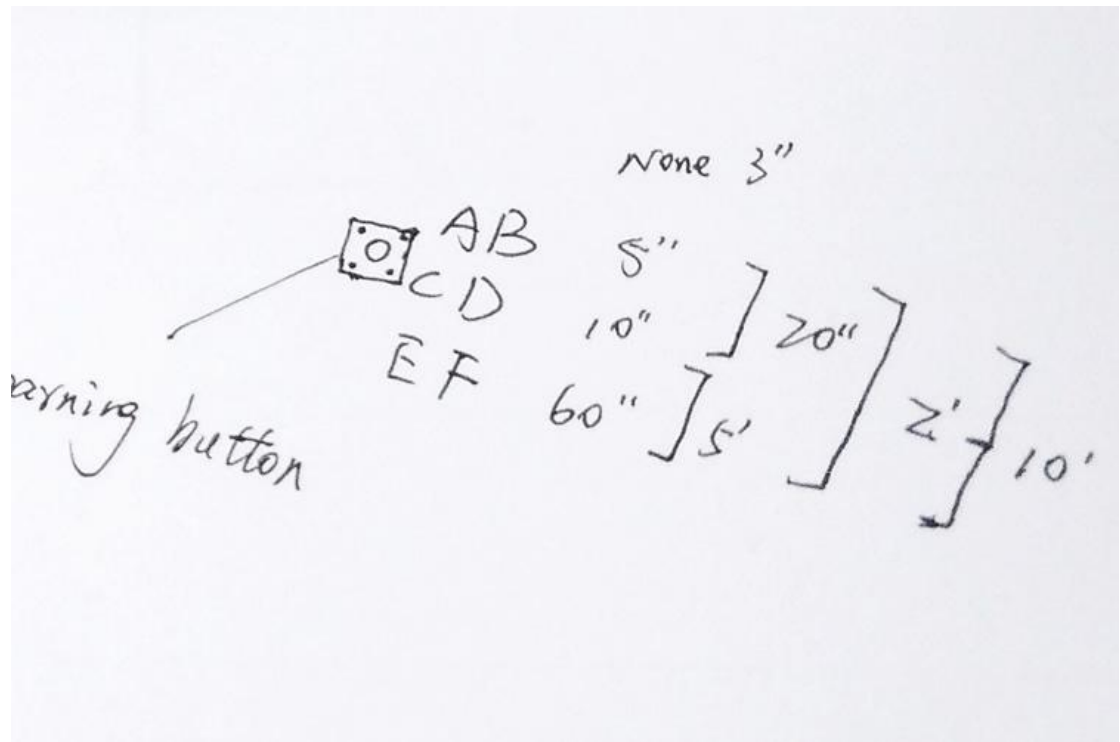 None 3"
AB 5"
CD 10" 20"
EF 60" 5' 2' 10'
arning button